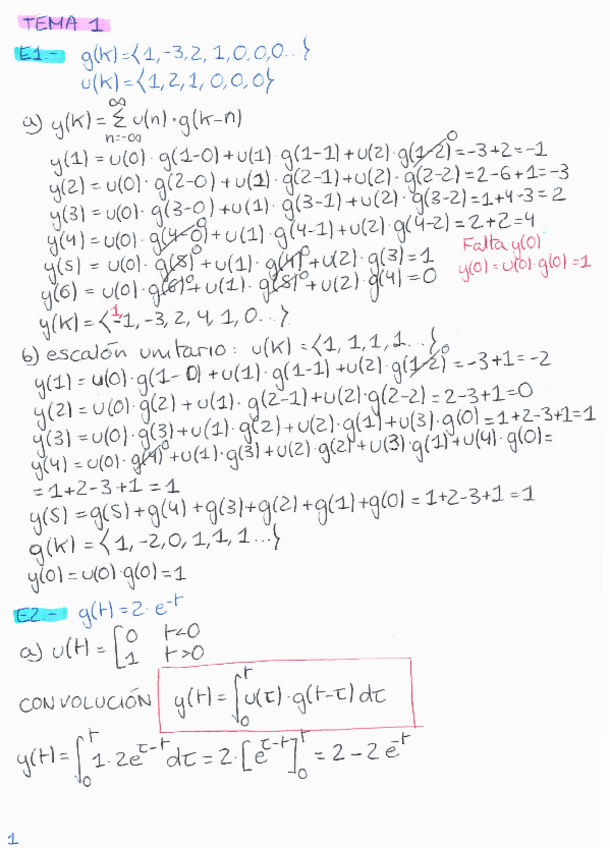 TEMA 1
E1.- g(k)={1,-3,2,1,0,0,0...}
u(k)={1,2,1,0,0,0}
a) y(k)=∞Σn=-∞ u(n)·g(k-n)
y(1)=u(0)·g(1-0)+u(1)·g(1-1)+u(2)·g(1-2)⁰=-3+2=-1
y(2)=u(0)·g(2-0)+u(1)·g(2-1)+u(2)·g(2-2)=2-6+1=-3
y(3)=u(0)·g(3-0)+u(1)·g(3-1)+u(2)·g(3-2)=1+4-3=2
y(4)=u(0)·g(4-0)⁰+u(1)·g(4-1)+u(2)·g(4-2)=2+2=4
y(5)=u(0)·g(5)⁰+u(1)·g(4)⁰+u(2)·g(3)=1
y(6)=u(0)·g(6)⁰+u(1)·g(5)⁰+u(2)·g(4)=0
Falta y(0)
y(0)=u(0)·g(0)=1
y(k)={1,-1,-3,2,4,1,0...}
b) escalón unitario: u(k)={1,1,1,1...}
y(1)=u(0)·g(1-0)+u(1)·g(1-1)+u(2)·g(1-2)⁰=-3+1=-2
y(2)=u(0)·g(2)+u(1)·g(2-1)+u(2)·g(2-2)=2-3+1=0
y(3)=u(0)·g(3)+u(1)·g(2)+u(2)·g(1)+u(3)·g(0)=1+2-3+1=1
y(4)=u(0)·g(4)⁰+u(1)·g(3)+u(2)·g(2)+u(3)·g(1)+u(4)·g(0)=
=1+2-3+1=1
y(5)=g(5)+g(4)+g(3)+g(2)+g(1)+g(0)=1+2-3+1=1
g(k)={1,-2,0,1,1,1...}
y(0)=u(0)·g(0)=1
E2.- g(t)=2·e⁻ᵗ
a) u(t)=[0 t<0
1 t>0
CONVOLUCIÓN y(t)=∫₀ᵗu(τ)·g(t-τ)dτ
y(t)=∫₀ᵗ1·2e^(τ-t)dτ=2·[e^(τ-t)]₀ᵗ=2-2e⁻ᵗ
1